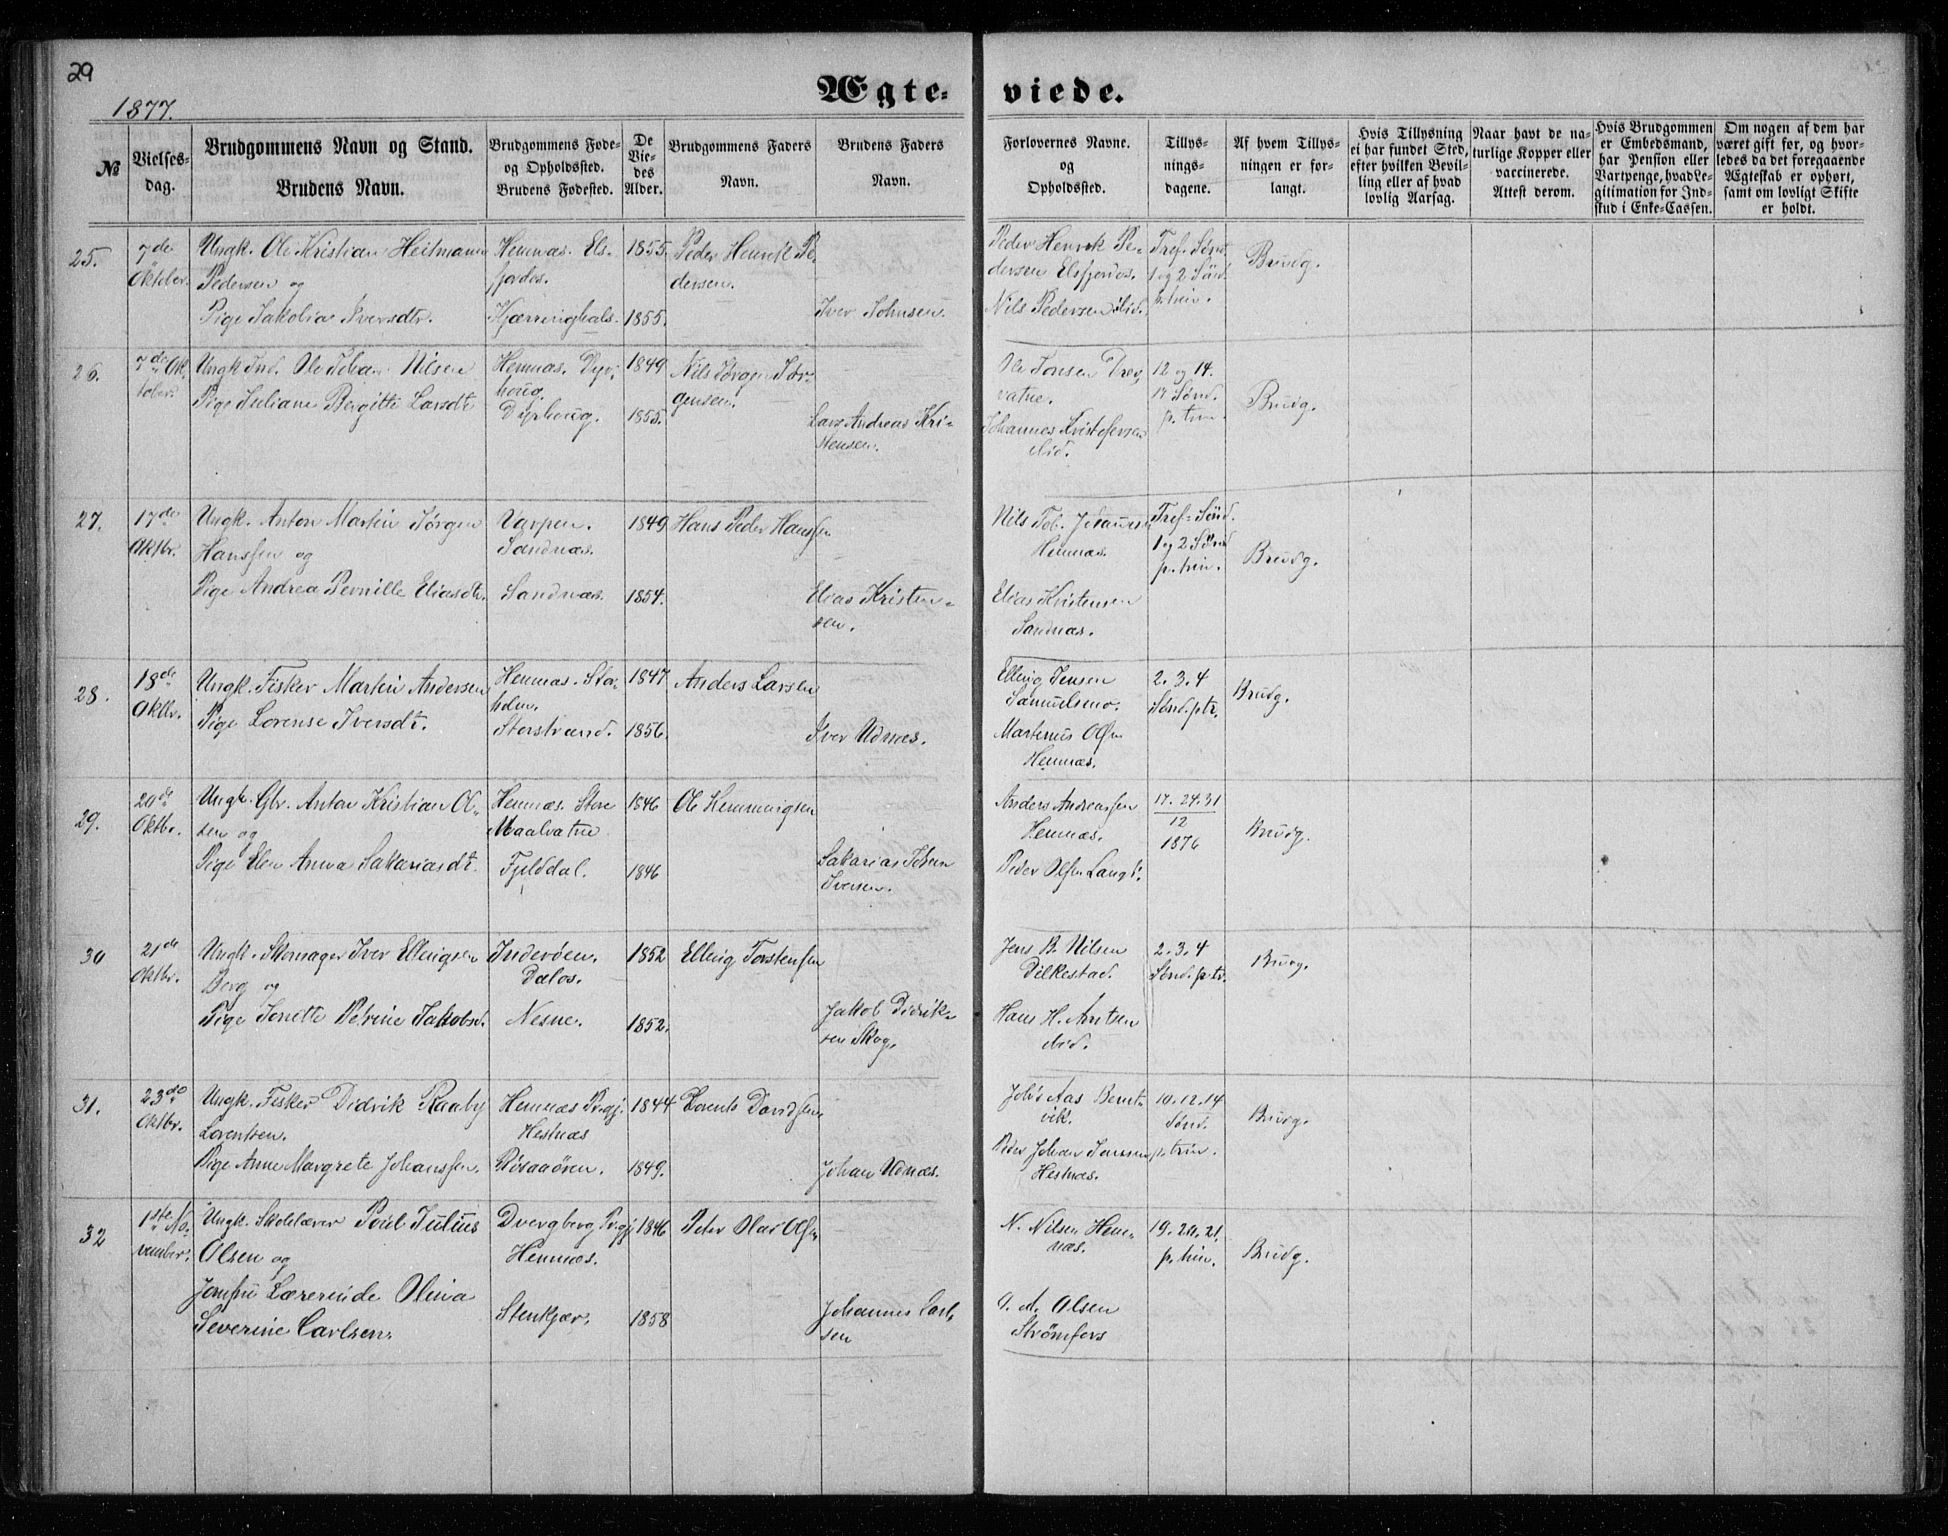 29
1877.
Ægte-viede.
№
Vielses-
dag.
Brudgommens Navn og Stand.
Brudens Navn.
Brudgommens Føde-
og Opholdssted.
Brudens Fødested.
De
Vie-
des
Alder.
Brudgommens Faders
Navn.
Brudens Faders
Navn.
Forlovernes Navne.
og
Opholdssted.
Tillys-
nings-
dagene.
Af hvem Tillys-
ningen er for-
langt.
Hvis Tillysning
ei har fundet Sted,
efter hvilken Bevil-
ling eller af hvad
lovlig Aarsag.
Naar havt de na-
turlige Kopper eller
vaccinerede.
Attest derom.
Hvis Brudgommen
er Embedsmand,
har Pension eller
Vartpenge, hvad Le-
gitimation for Ind-
skud i Enke-Cassen.
Om nogen af dem har
været gift før, og hvor-
ledes da det foregaaende
Ægteskab er ophørt,
samt om lovligt Skifte
er holdt.
25.
7de
Oktober.
Ungk. Ole Kristian Heitmann
Pedersen og
Pige Jakobia Iversdtr.
Hemnæs. Els-
fjordos.
Kjærringhals.
1855.
1855.
Peder Henrik Pe-
dersen.
Iver Johnsen.
Peder Henrik Pe-
dersen Elsfjordos.
Nils Pedersen ibid.
Tref. Sønd.
1 og 2 Sønd.
p. trin.
Brudg.
26.
7de Ok-
tober.
Ungk. Ind. Ole Johan Nilsen
Pige Juliane Bergitte Larsdt.
Hemnæs. Dyr-
houg.
Dyrhoug.
1849
1855.
Nils Jørgen Jør-
gensen.
Lars Andreas Kri-
stensen.
Ole Tonsen Drev-
vatne.
Johannes Kristofersen
ibid.
12 og 14.
17 Sønd.
p. trin.
Brudg.
27.
17de
Oktbr.
Ungk. Anton Martin Jørgen
Hanssen og
Pige Andrea Pernille Eliasdt.
Varpen.
Sandnæs.
Sandnæs.
1849
1854.
Hans Peder Hanssen
Elias Kristen-
sen.
Nils Tob. Johansen
Hemnæs.
Elias Kristensen
Sandnæs.
Tref. Sønd.
1 og 2 Sønd
p. trin.
Brudg.
28.
18de
Oktbr.
Ungk. Fisker Martin Andersen
Pige Lorense Iversdt.
Hemnæs. Stor-
holm.
Storstrand.
1847
1856.
Anders Larsen
Iver Udnæs.
Elling Jensen
Samuelsmo.
Martinus Olsen
Hemnæs.
2. 3. 4
Sønd. p tr.
Brudg.
29.
20de
Oktbr.
Ungk. Gbr. Anton Kristian Ol-
sen og
Pige Elen Anna Sakariasdt.
Hemnæs. Store
Maalvatne
Fjelddal.
1846
1846
Ole Hemmingsen
Sakarias Johan
Iversen.
Anders Andreassen
Hemnæs.
Peder Olsen Langt.
17. 24. 31
12
1876
Brudg.
30
21de
Oktbr.
Ungk. Skomager Iver Ellingsen
Berg og
Pige Jonette Petrine Jakobsd.
Inderøen.
Dalos.
Nesne.
1852
1852.
Elling Torstensen
Jakob Didrik-
sen Skog.
Jens B. Nilsen
Dilkestad.
Hans H. Arntsen
ibid.
2. 3. 4
Sønd. p tr.
Brudg.
31.
23de
Oktbr.
Ungk. Fisker Didrik Raaby
Lorentsen.
Pige Anne Margrete Johanssen.
Hemnæs Prgj.
Hestnæs
Røsaaøren.
1844
1849.
Lorents Davidsen
Johan Udnæs.
Johs Aas Bernt-
vik.
Peder Johan Jonssen
Hestnæs.
10. 12. 14
Sønd.
p. trin.
Brudg.
32
1ste No-
vember.
Ungk. Skolelærer Poul Julius
Olsen og
Jomfru Lærerinde Olina
Severine Carlsen.
Dvergberg Prgj
Hemnæs.
Stenkjær.
1846
1858
Peter Olai Olsen
Johannes Carl-
sen
N. Nilsen Hem-
næs.
O. A. Olsen
Strømfors
19. 20. 21.
p. trin.
Brudg.